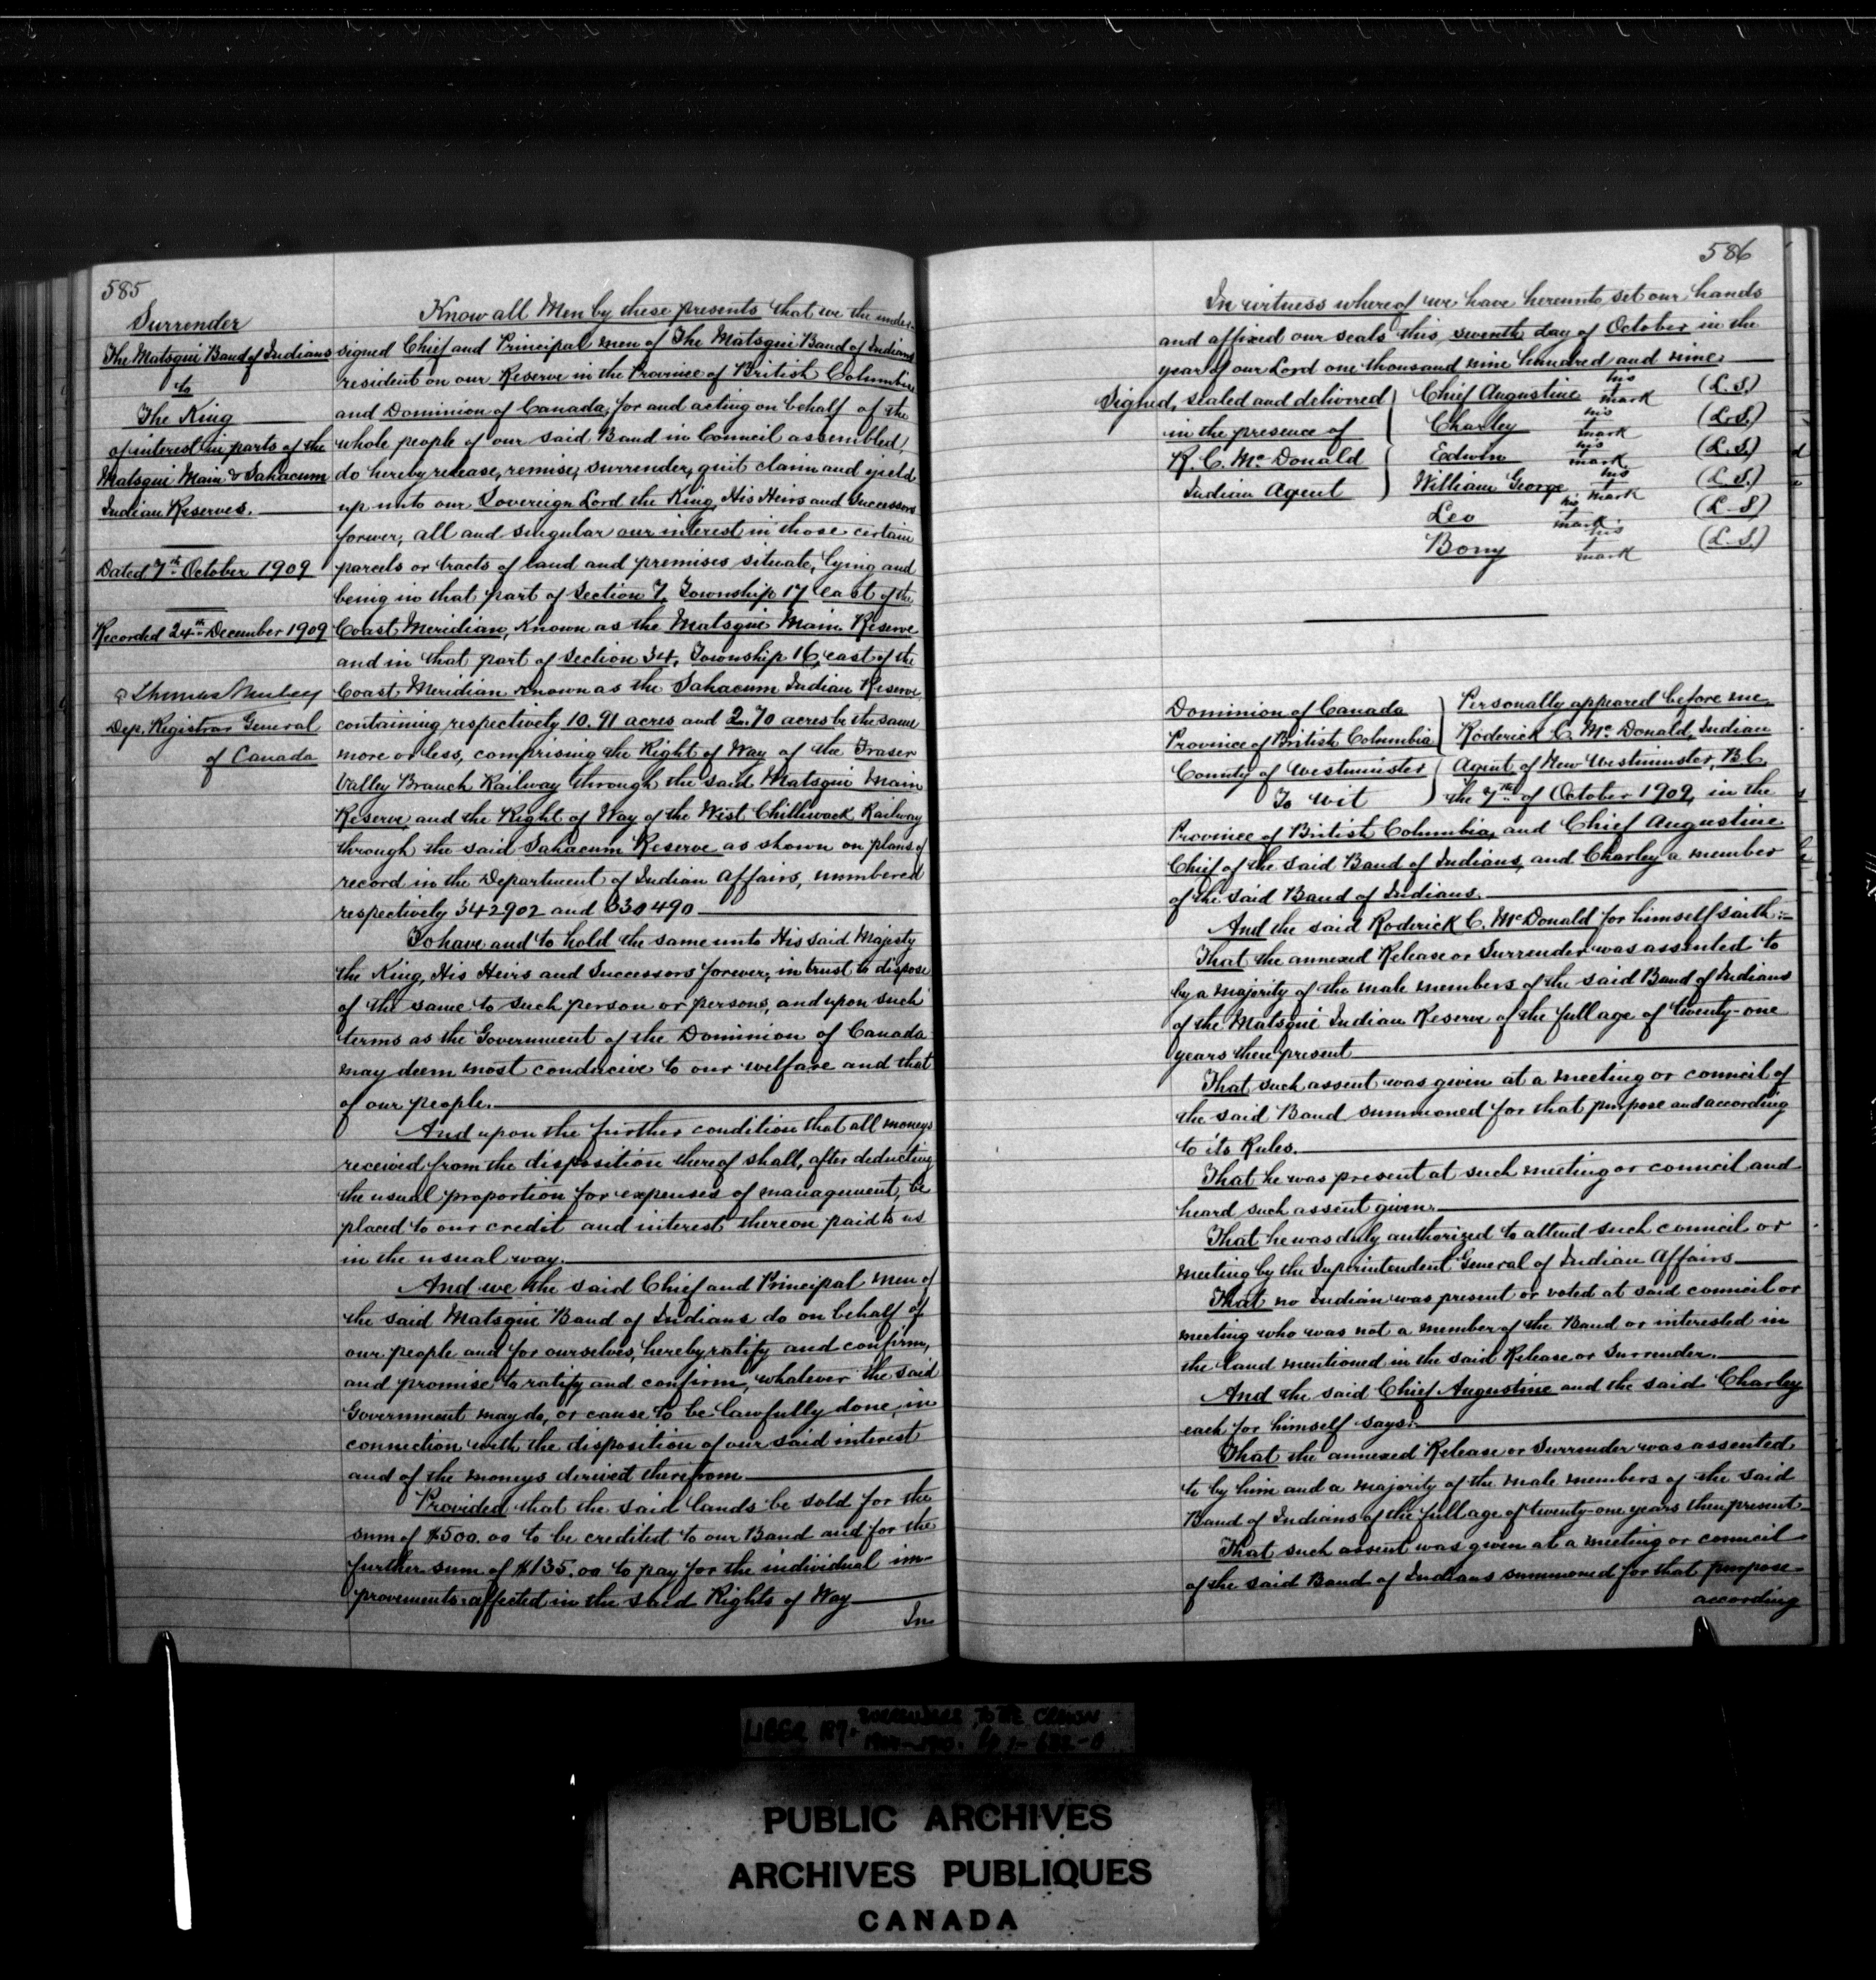 585
Surrender
The Matsqui Band of Indians
to
The King
of interest in parts of the
Matsqui Main & Sahacum
Indian Reserves.
Dated 7th October 1909
Recorded 24th December 1909
Dep. Registrar General
of Canada
Know all Men by these presents that we the under-
signed Chief and Principal men of The Matsqui Band of Indians
resident on our Reserve in the Province of British Columbia
and Dominion of Canada, for and acting on behalf of the
whole people of our said Band in Council assembled,
do hereby release, remise, surrender, quit claim and yield
up unto our Sovereign Lord the King, His Heirs and Successors
forever, all and singular our interest in those certain
parcels or tracts of land and premises situate, lying and
being in that part of Section 7, Township 17 east of the
Coast Meridian, known as the Matsqui Main Reserve
and in that part of Section 34, Township 16, east of the
Coast Meridian known as the Sahacum Indian Reserve
containing respectively 10.91 acres and 2.70 acres be the same
more or less, comprising the Right of Way of the Fraser
Valley Branch Railway through the said Matsqui Main
Reserve and the Right of Way of the West Chilliwack Railway
through the said Sahacum Reserve as shown on plans of
record in the Department of Indian Affairs, numbered
respectively 342902 and 330490
To have and to hold the same unto His said Majesty
the King, His Heirs and Successors forever, in trust to dispose
of the same to such person or persons, and upon such
terms as the Government of the Dominion of Canada
may deem most conducive to our welfare and that
of our people.
And upon the further condition that all moneys
received from the disposition thereof shall, after deducting
the usual proportion for expenses of management, be
placed to our credit and interest thereon paid to us
in the usual way.
And we the said Chief and Principal men of
the said Matsqui Band of Indians do on behalf of
our people and for ourselves, hereby ratify and confirm,
and promise to ratify and confirm, whatever the said
Government may do, or cause to be lawfully done, in
connection with the disposition of our said interest
and of the moneys derived therefrom.
Provided that the said lands be sold for the
sum of $500.00 to be credited to our Band and for the
further sum of $135.00 to pay for the individual im-
provements affected in the said Rights of Way
In
586
In witness whereof we have hereunto set our hands
and affixed our seals this seventh day of October in the
year of our Lord one thousand nine hundred and nine.
Signed, sealed and delivered
in the presence of
R. C. McDonald
Indian Agent
Chief Augustine his + mark (L.S.)
Charley his + mark (L.S.)
Edwin his + mark (L.S.)
William George his + mark (L.S.)
Leo his + mark (L.S.)
Bony his + mark (L.S.)
Dominion of Canada
Province of British Columbia
County of Westminster
To wit
Personally appeared before me
Roderick C. McDonald, Indian
Agent of New Westminster, B.C.
the 7th of October 1909, in the
Province of British Columbia, and Chief Augustine
Chief of the said Band of Indians, and Charley a member
of the said Band of Indians.
And the said Roderick C. McDonald for himself saith:-
That the annexed Release or Surrender was assented to
by a majority of the male members of the said Band of Indians
of the Matsqui Indian Reserve of the full age of twenty-one
years then present
That such assent was given at a meeting or council of
the said Band summoned for that purpose and according
to its Rules.
That he was present at such meeting or council and
heard such assent given.
That he was duly authorized to attend such council or
meeting by the Superintendent General of Indian Affairs
That no Indian was present or voted at said council or
meeting who was not a member of the Band or interested in
the land mentioned in the said Release or Surrender.
And the said Chief Augustine and the said Charley
each for himself says:-
That the annexed Release or Surrender was assented
to by him and a majority of the male members of the said
Band of Indians of the full age of twenty-one years then present
That such assent was given at a meeting or council
of the said Band of Indians summoned for that purpose
according
PUBLIC ARCHIVES
ARCHIVES PUBLIQUES
CANADA